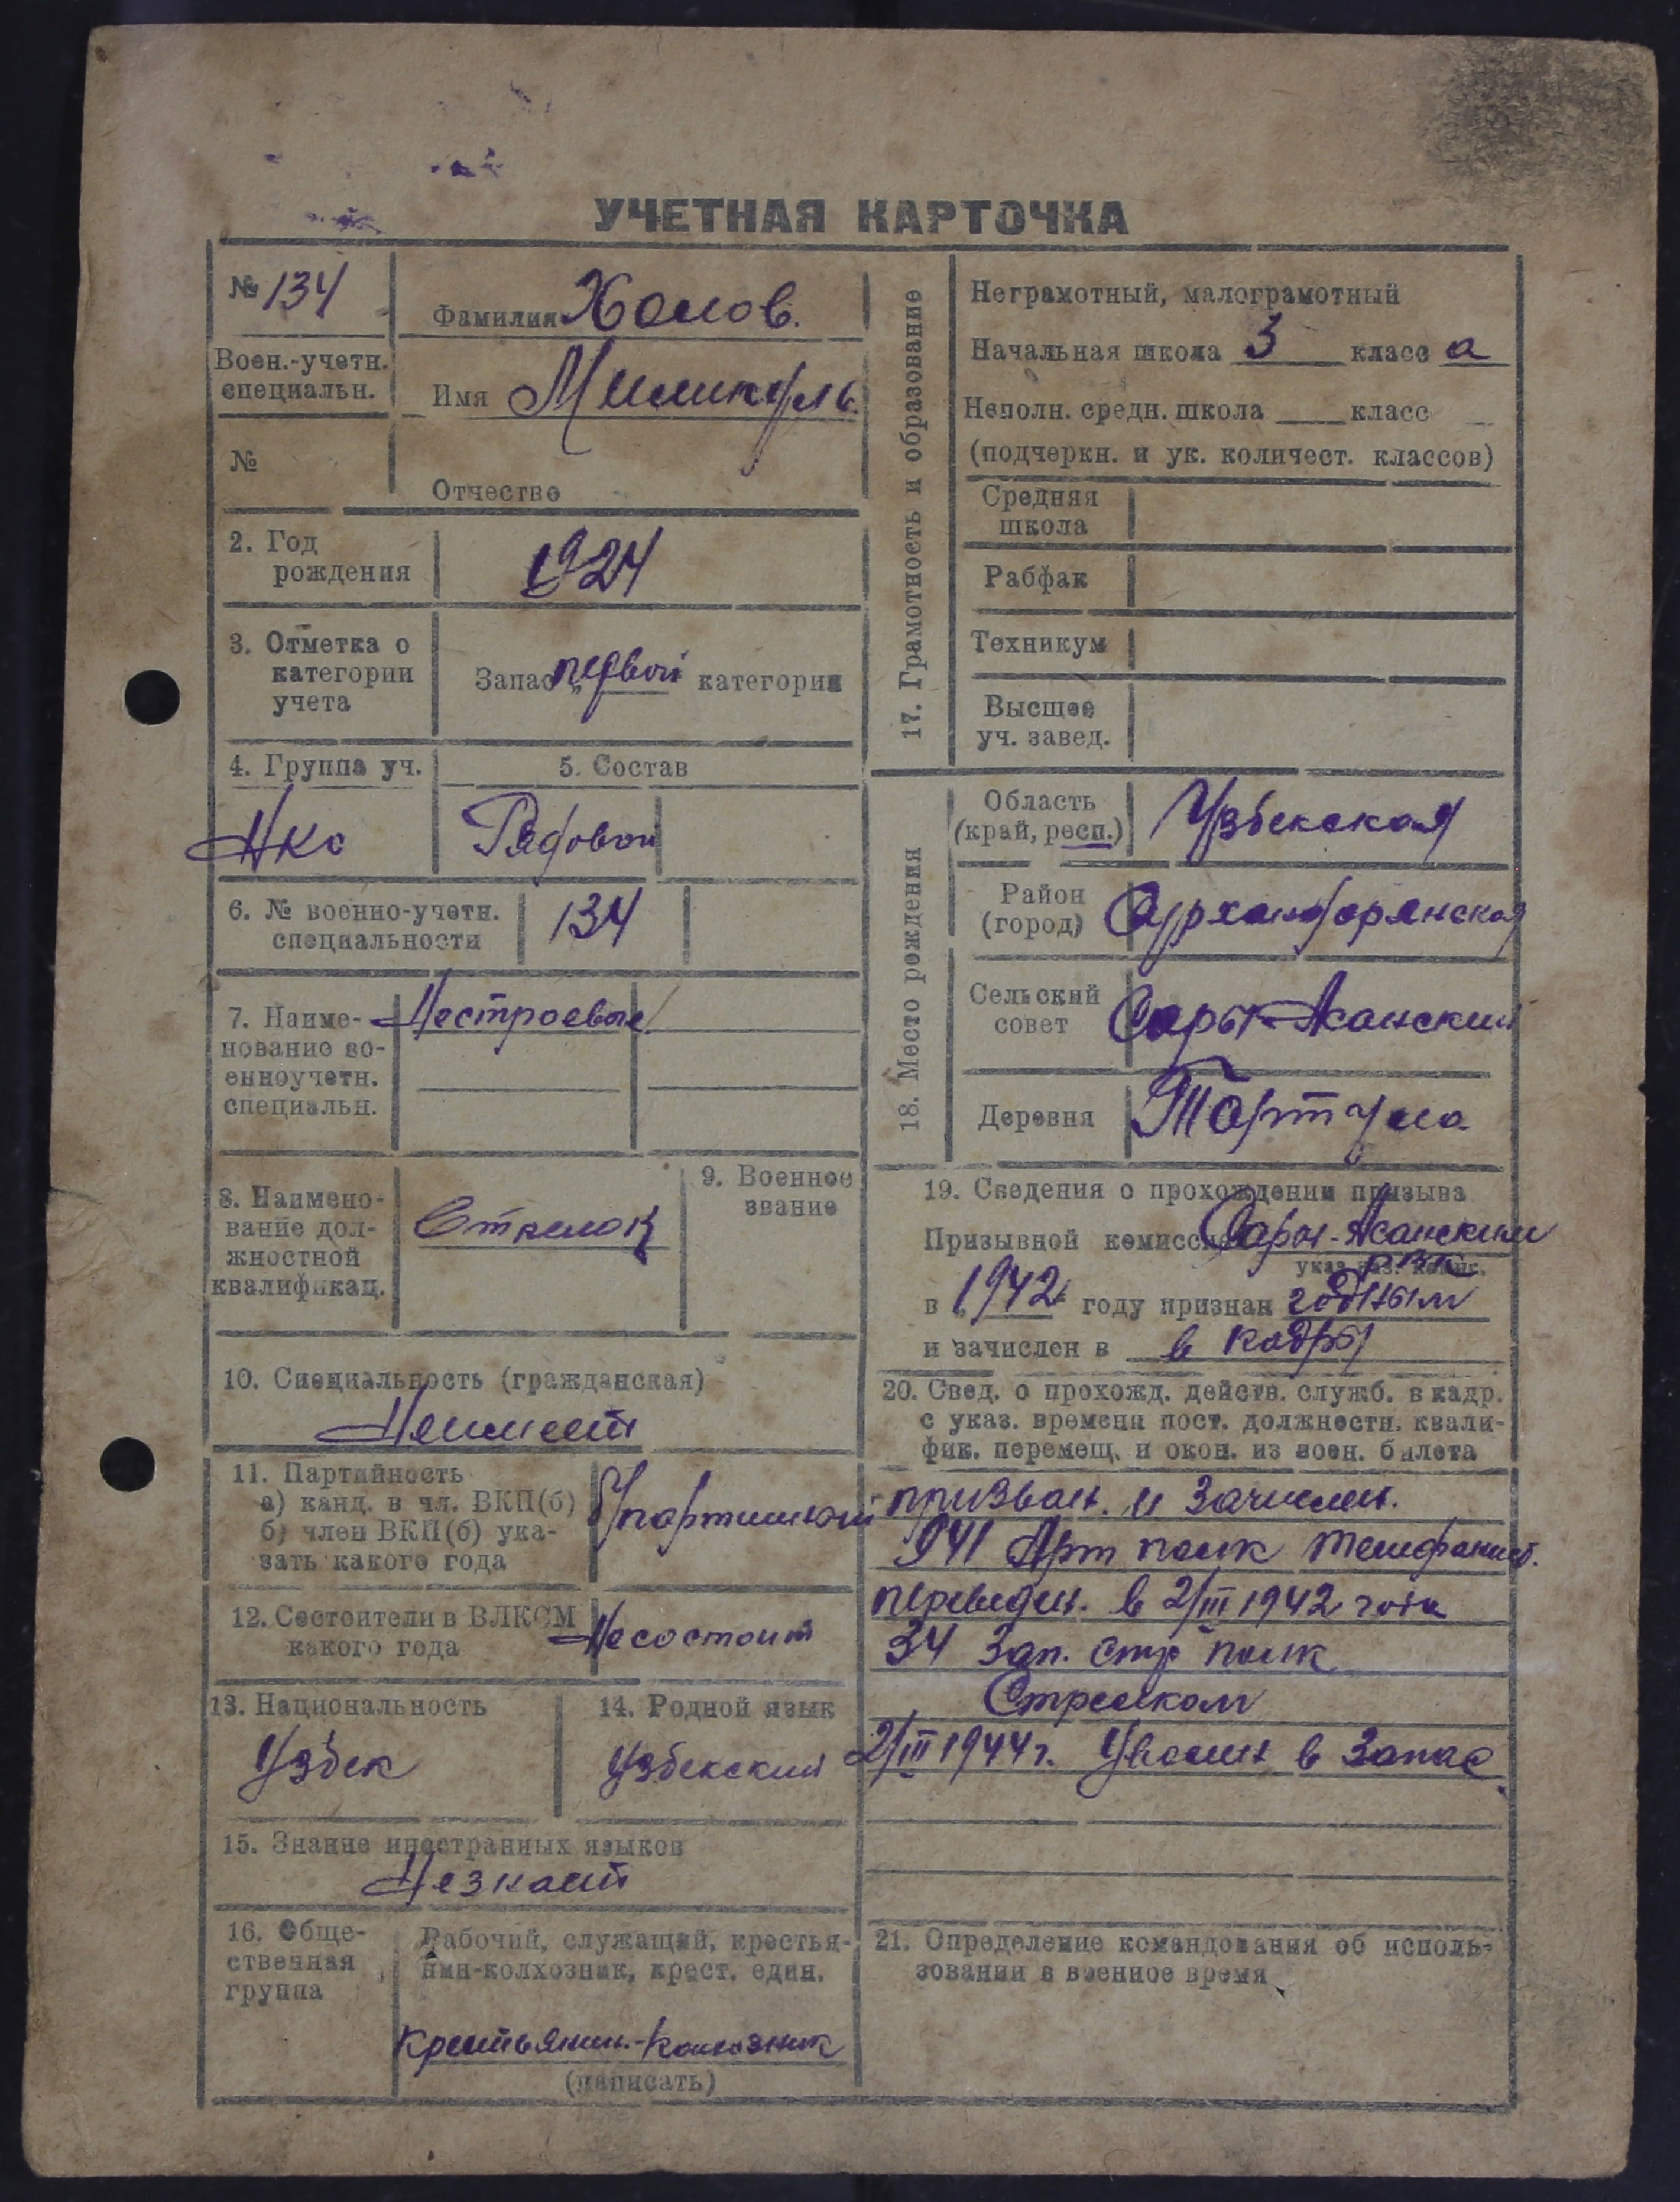 УЧЕТНАЯ КАРТОЧКА
№ 134
Фамилия Холов.
Воен.-учетн.
специальн.
Имя Миликуль.
№
Отчество
2. Год
рождения
1924
3. Отметка о
категории
учета
Запас „первой категории
4. Группа уч.
5. Состав
НКО
Рядовой
6. № военно-учетн.
специальности
134
7. Наиме-
нование во-
енноучетн.
специальн.
Нестроевые
8. Наимено-
вание дол-
жностной
квалификац.
Стрелок
9. Военное
звание
10. Специальность (гражданская)
Неимеет
11. Партийность
а) канд. в чл. ВКП(б)
б) член ВКП(б) ука-
зать какого года
б/партийный
12. Состоит ли в ВЛКСМ
какого года
Несостоит
13. Национальность
Узбек
14. Родной язык
Узбекский
15. Знание иностранных языков
Незнает
16. Обще-
ственная
группа
Рабочий, служащий, крестья-
нин-колхозник, крест. един.
Крестьянин-колхозник
(написать)
17. Грамотность и образование
Неграмотный, малограмотный
Начальная школа 3 класс а
Неполн. средн. школа класс
(подчеркн. и ук. количест. классов)
Средняя
школа
Рабфак
Техникум
Высшее
уч. завед.
18. Место рождения
Область
(край, респ.)
Узбекская
Район
(город)
Сурхандарянская
Сельский
совет
Сары-Асанский
Деревня
Тартула
19. Сведения о прохождении призыва
Призывной комиссией Сары-Асанским
РВК
указ. наз. комис.
в „1942“ году признан годным
и зачислен в в кадры
20. Свед. о прохожд. действ. служб. в кадр.
с указ. времени пост. должностн. квали-
фик. перемещ. и окон. из воен. билета
призван. и зачислен.
941 Арт полк телефонист.
переведен. в 2/III 1942 года
34 Зап. стр полк
Стрелком
2/III 1944 г. Уволен в Запас
21. Определение командования об исполь-
зовании в военное время